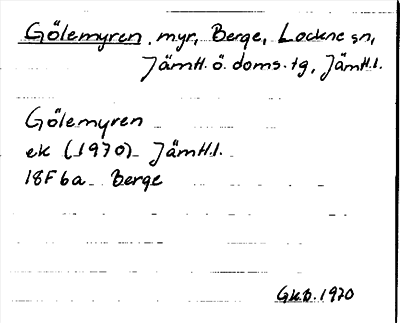 Gölemyren, myr, Berge, Lockne sn,
Jämtl. ö. doms. tg, Jämtl. l.
Gölemyren
ek (1970) Jämtl. l.
18F 6a Berge
GkB. 1970